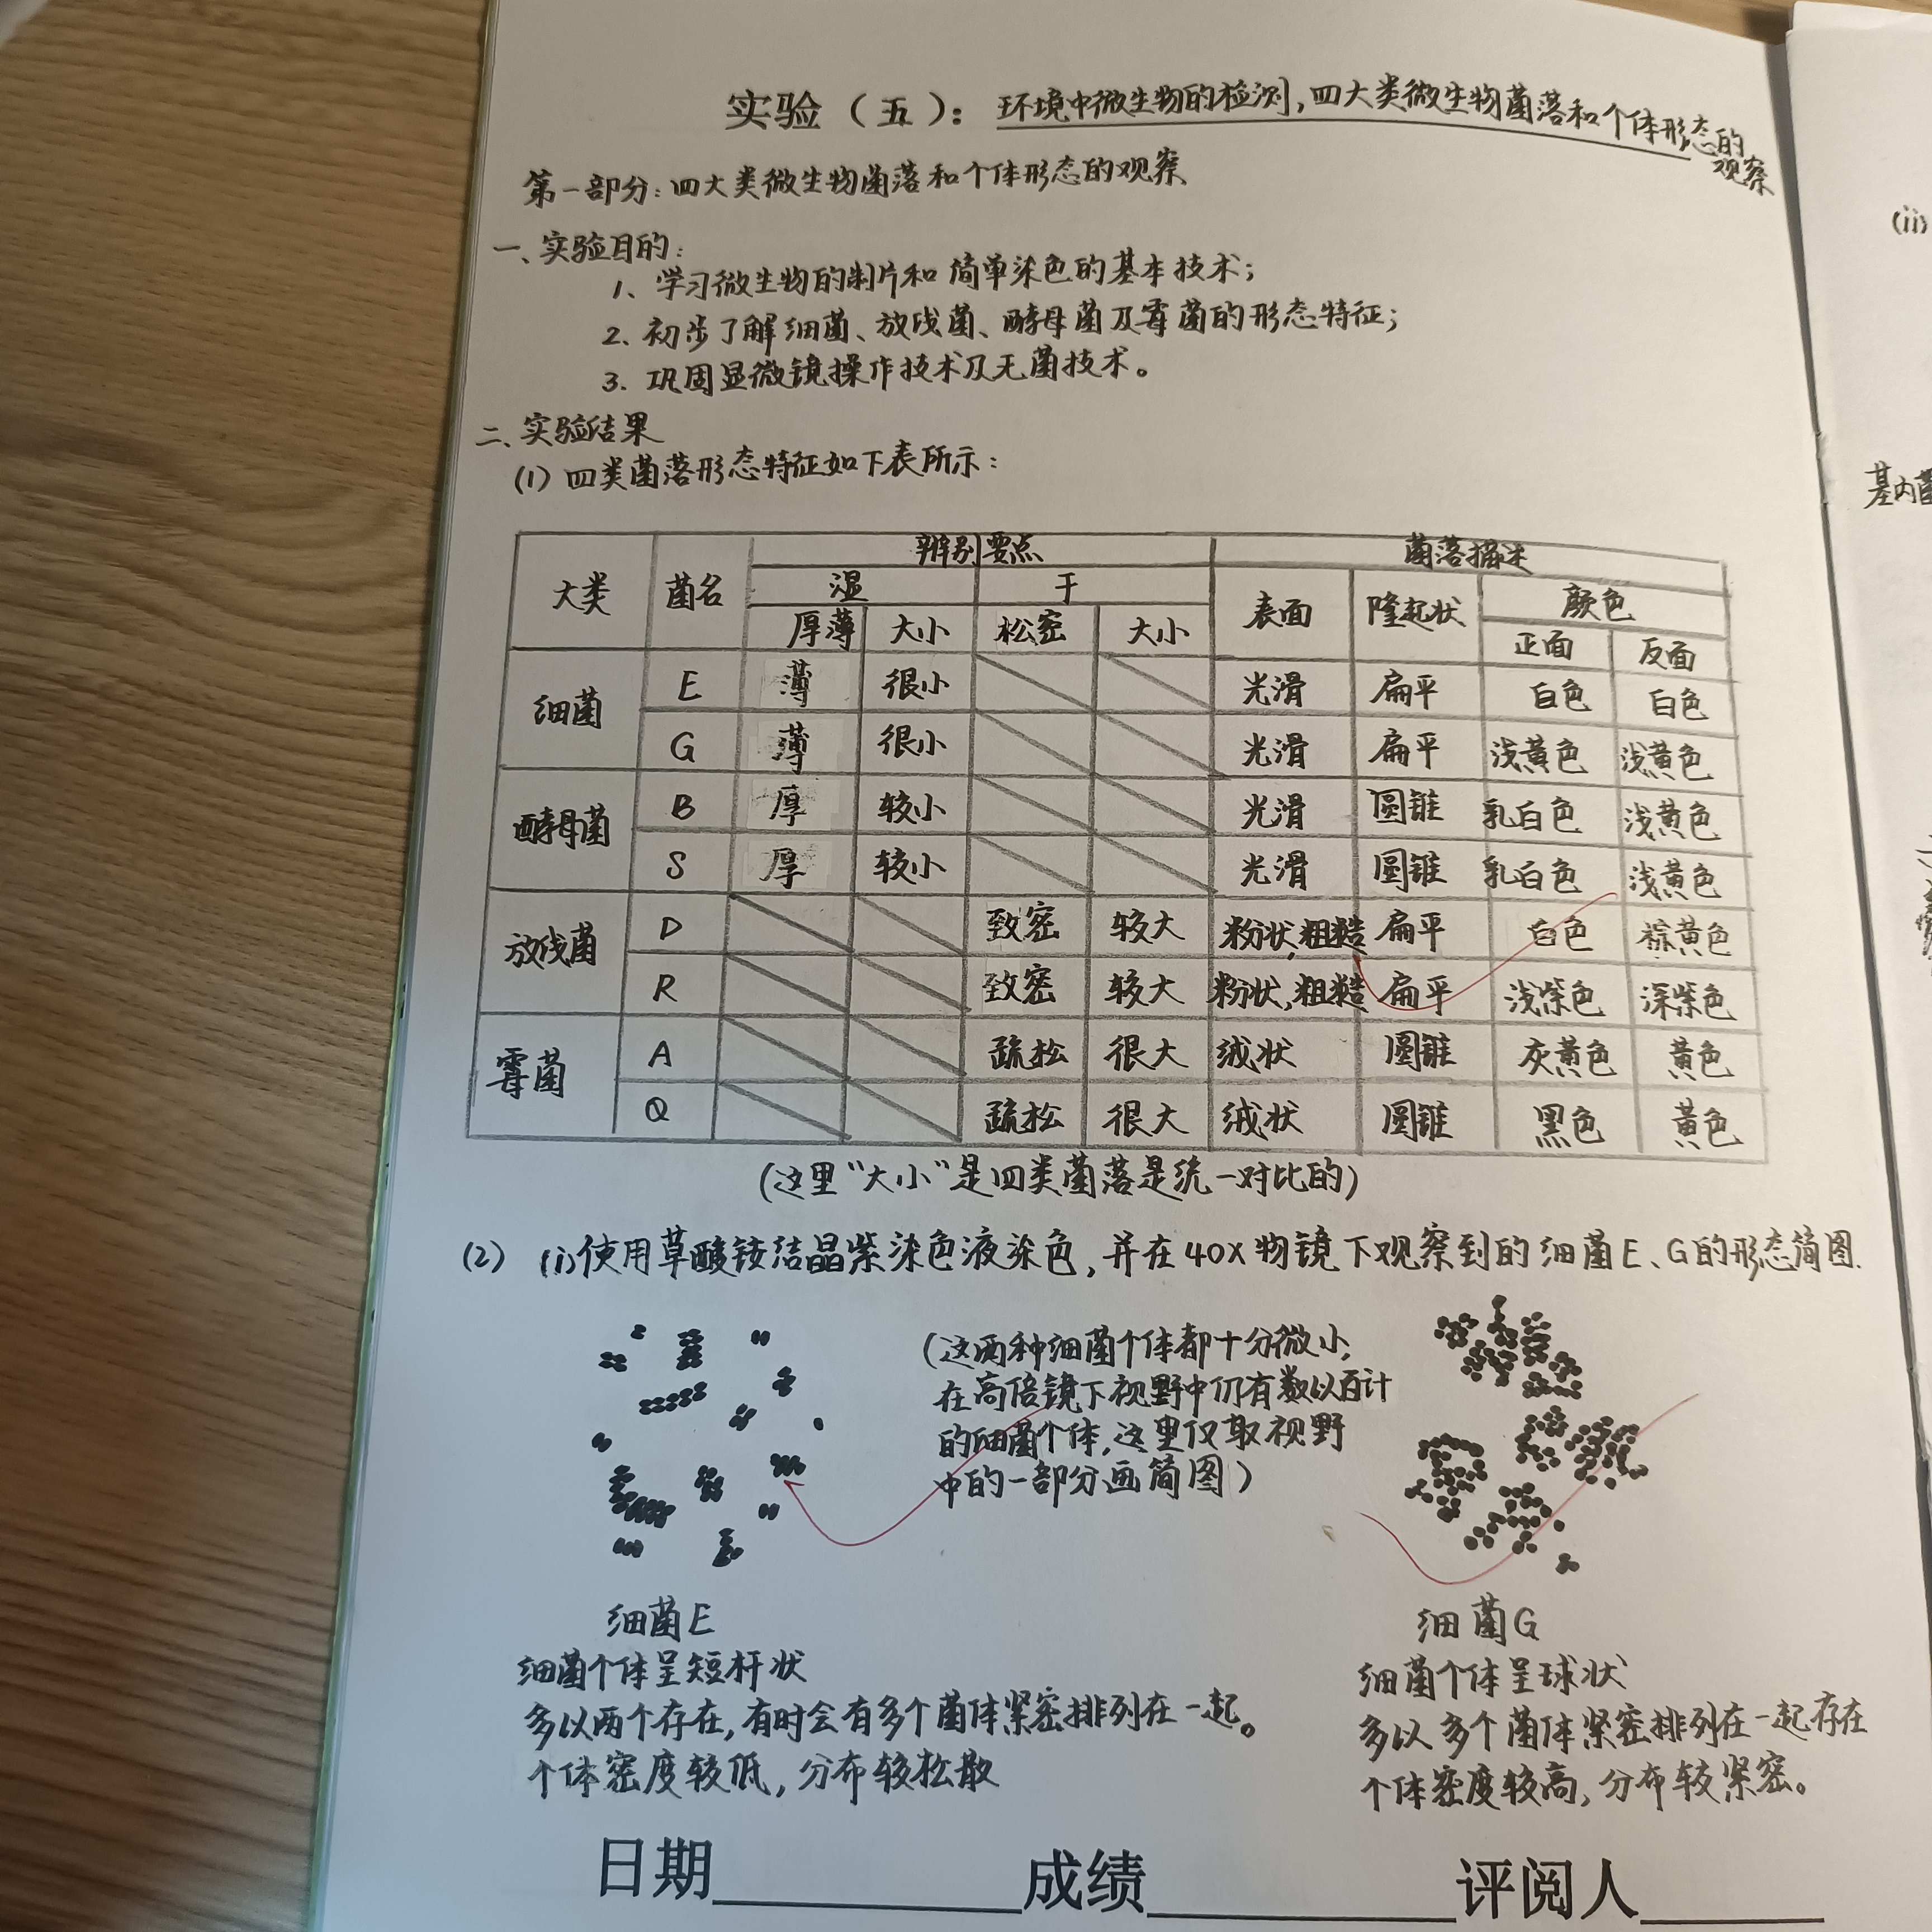 实验（五）：环境中微生物的检测，四大类微生物菌落和个体形态的
观察
第一部分：四大类微生物菌落和个体形态的观察
一、实验目的：
1、学习微生物的制片和简单染色的基本技术；
2、初步了解细菌、放线菌、酵母菌及霉菌的形态特征；
3. 巩固显微镜操作技术及无菌技术。
二、实验结果
(1) 四类菌落形态特征如下表所示：
大类 菌名 辨别要点 菌落描述
湿 干 表面 隆起状 颜色
厚薄 大小 松密 大小 正面 反面
细菌 E 薄 很小 光滑 扁平 白色 白色
G 薄 很小 光滑 扁平 浅黄色 浅黄色
酵母菌 B 厚 较小 光滑 圆锥 乳白色 浅黄色
S 厚 较小 光滑 圆锥 乳白色 浅黄色
放线菌 D 致密 较大 粉状,粗糙 扁平 白色 棕黄色
R 致密 较大 粉状,粗糙 扁平 浅紫色 深紫色
霉菌 A 疏松 很大 绒状 圆锥 灰黄色 黄色
Q 疏松 很大 绒状 圆锥 黑色 黄色
(这里"大小"是四类菌落是统一对比的)
(2) (i)使用草酸铵结晶紫染色液染色，并在40X物镜下观察到的细菌E、G的形态简图.
(这两种细菌个体都十分微小,
在高倍镜下视野中仍有数以百计
的细菌个体,这里仅取视野
中的一部分画简图)
细菌E
细菌个体呈短杆状
多以两个存在,有时会有多个菌体紧密排列在一起。
个体密度较低，分布较松散
细菌G
细菌个体呈球状
多以多个菌体紧密排列在一起存在
个体密度较高,分布较紧密。
日期 成绩 评阅人
(ii)
基内菌